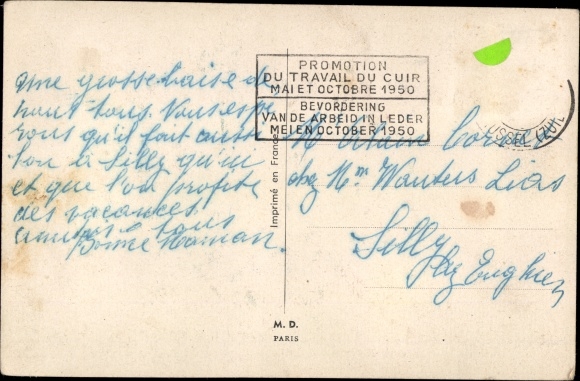 une grosse baise de
nous tous. Nous espé
rons qu'il fait aussi
bon à Silly qu'ici
et que l'on profite
des vacances
à tous
Bonne Maman.
PROMOTION
DU TRAVAIL DU CUIR
MAI ET OCTOBRE 1950
BEVORDERING
VAN DE ARBEID IN LEDER
MEI EN OCTOBER 1950
Imprimé en France
chez Mm Wauters Lias
Silly
lez Enghien
M. D.
PARIS